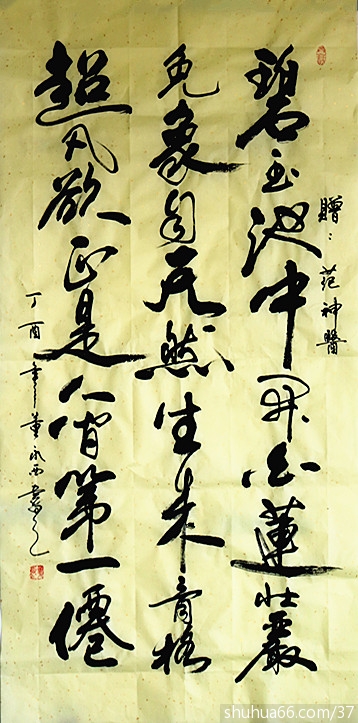 贈：范神醫
碧玉池中開白蓮壮嚴
色象自天然生来骨格
超凡欲正是人間第一僊
丁酉年董永西書
shuhua66.com/37